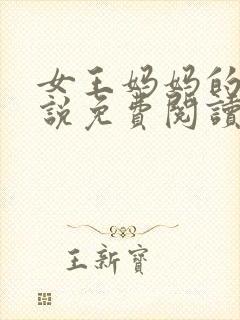 女王妈妈的
說免費閱讀
王新寶